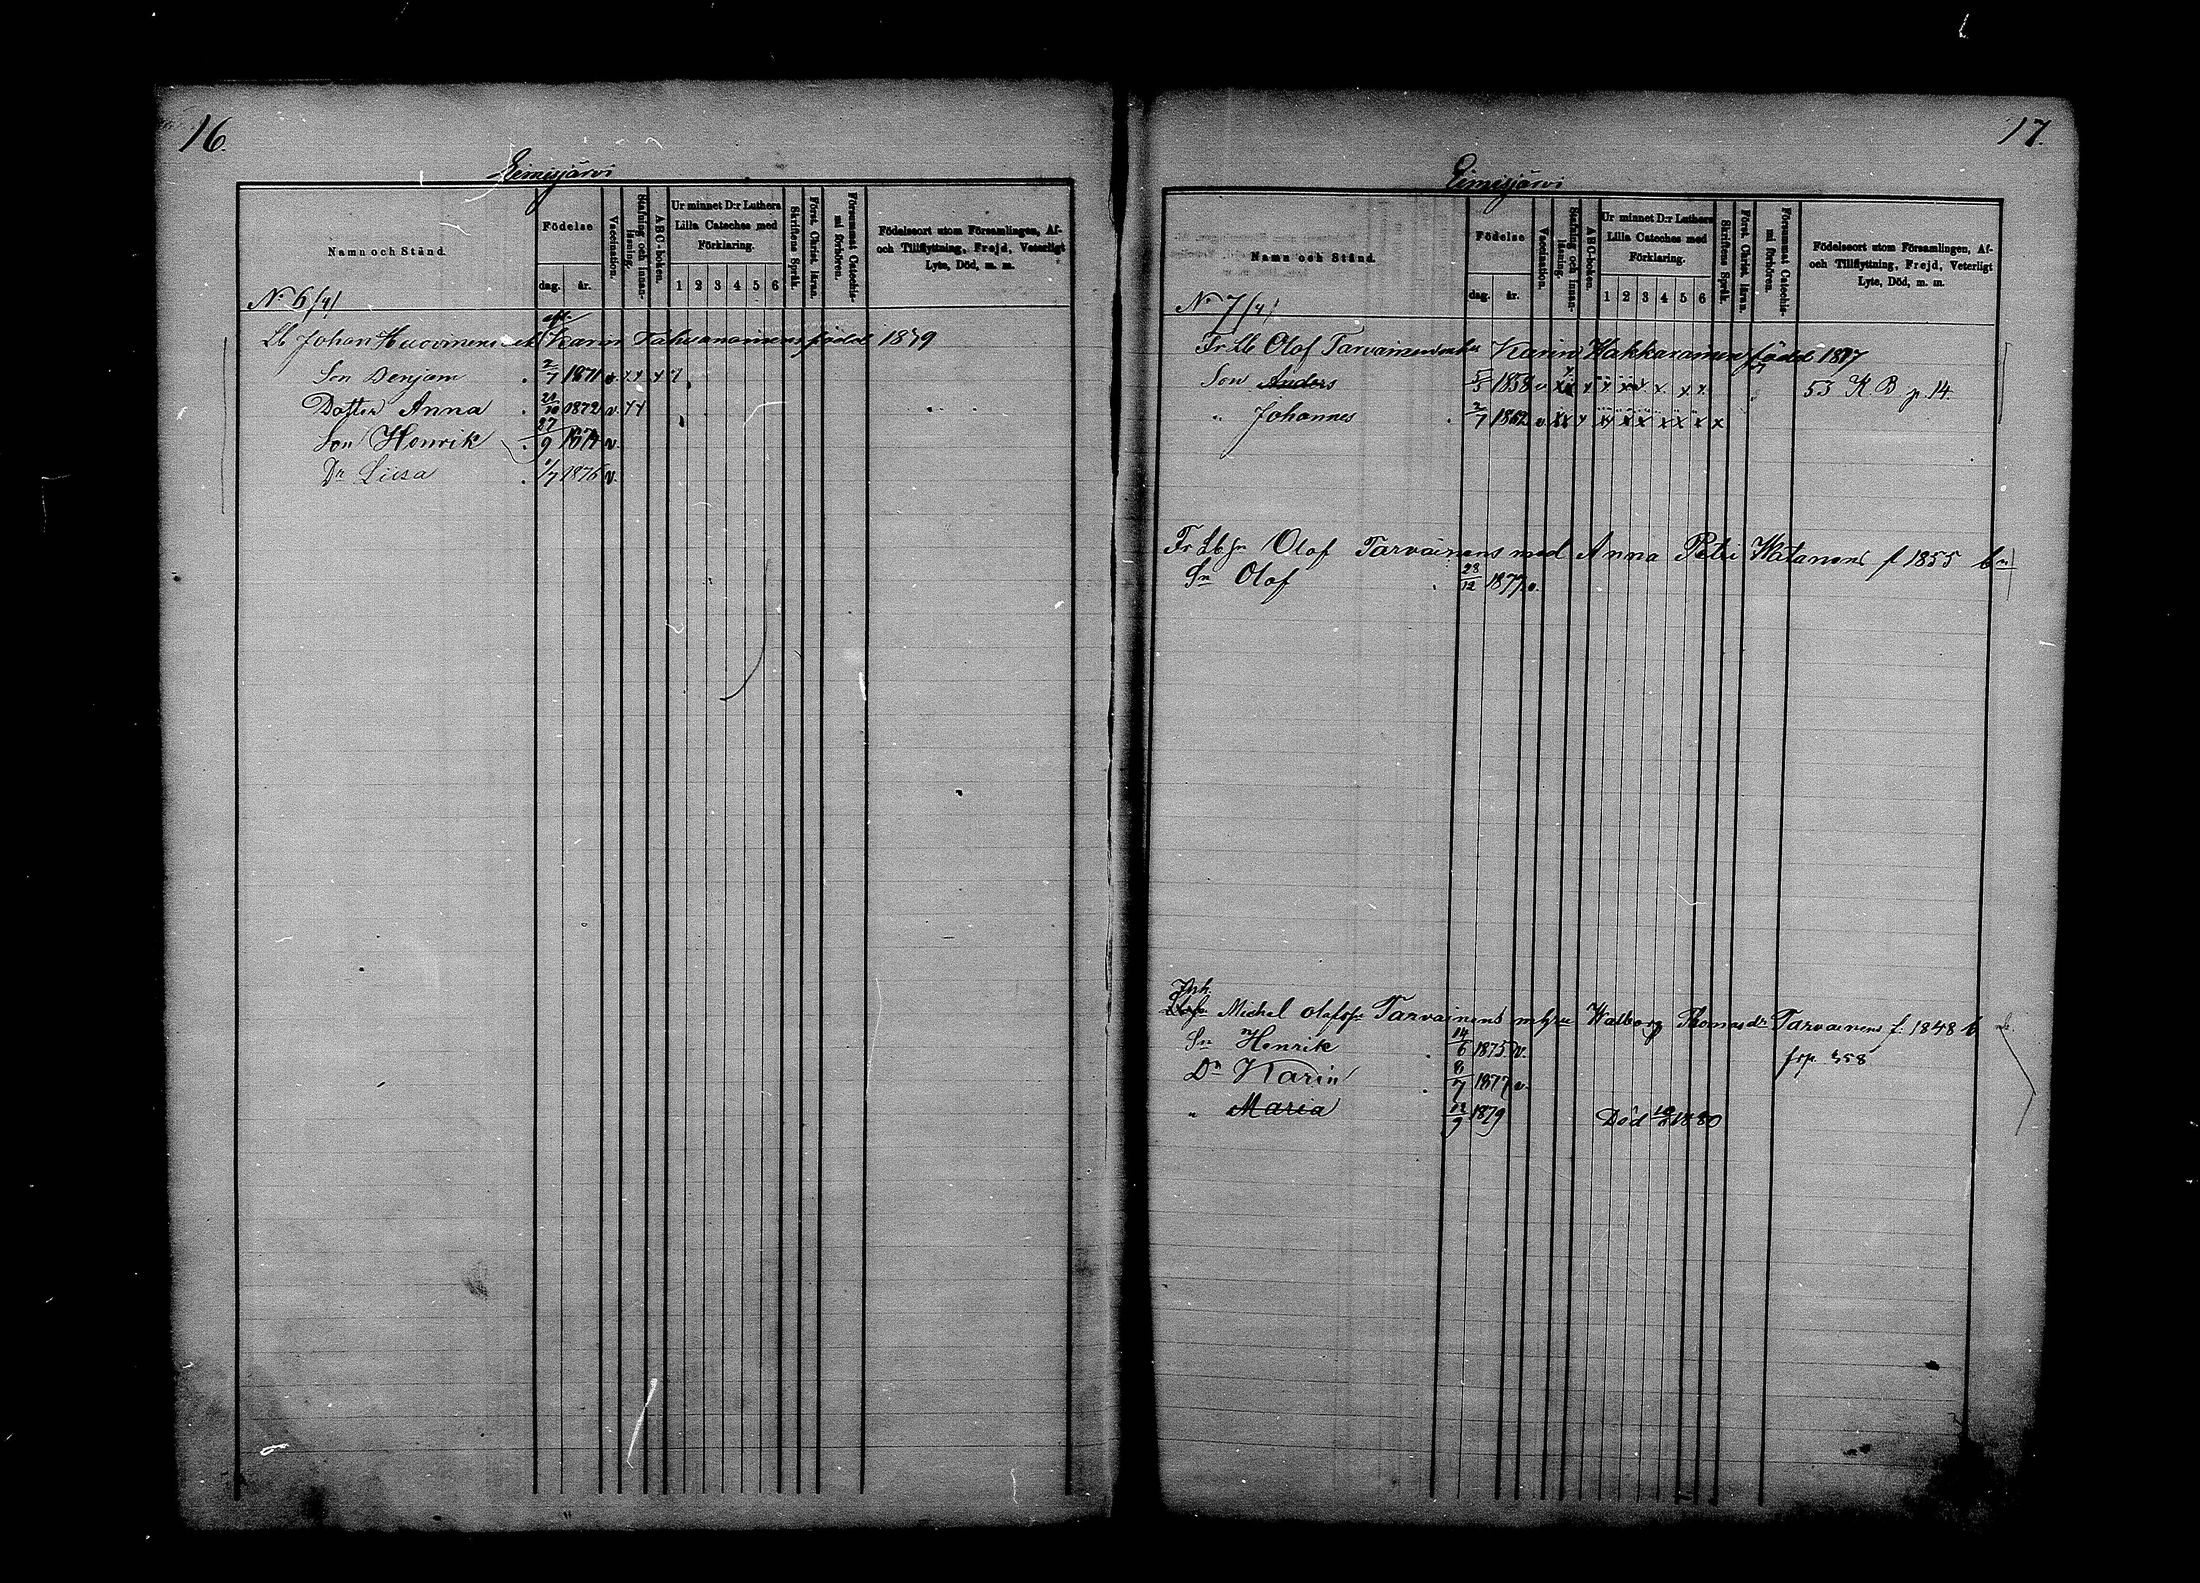 16.
Eimisjärvi
Namn och Stånd.
Födelse
dag. år.
Vaccination.
Stafning och innanläsning.
ABC-boken.
Ur minnet D:r Luthers Lilla Cateches med Förklaring.
1 2 3 4 5 6
Skriftens Språk.
Först. Christ. läran.
Försummat Catechismi förhören.
Födelseort utom Församlingen, Af- och Tillflyttning, Frejd, Veterligt Lyte, Död, m. m.
No 6/4/
Lb Johan Huovinens Karin födde 1839
Son Benjam 2/7 1871 v x x x
Dotter Anna 1872 v. x x
Son Henrik 27/9 1874 v.
Dr Liisa 1/7 1876 v.
17.
Eimisjärvi
Namn och Stånd.
Födelse
dag. år.
Vaccination.
Stafning och innanläsning.
ABC-boken.
Ur minnet D:r Luthers Lilla Cateches med Förklaring.
1 2 3 4 5 6
Skriftens Språk.
Först. Christ. läran.
Försummat Catechismi förhören.
Födelseort utom Församlingen, Af- och Tillflyttning, Frejd, Veterligt Lyte, Död, m. m.
No 7/4/
Fr. Lb Olof Tarvainen Karin Hakkarainen född 1817
Son Anders 5/3 1858 v x x x x x x x x x 53 K. B p. 14.
" Johannes 2/7 1862 v x x x x x x x x x x
Fr Lb sn Olof Tarvainens med Anna Petri Watanens f 1855 bn
Sn Olof 28/12 1877 v.
Inh.
Michel Olofssn Tarvainens m hu Walborg Thomasdr Tarvainens f. 1848 b
Sn Henrik 14/6 1875 v. frp. 358
Dr Karin 8/7 1877 v.
" Maria 12/9 1879 Död 1880